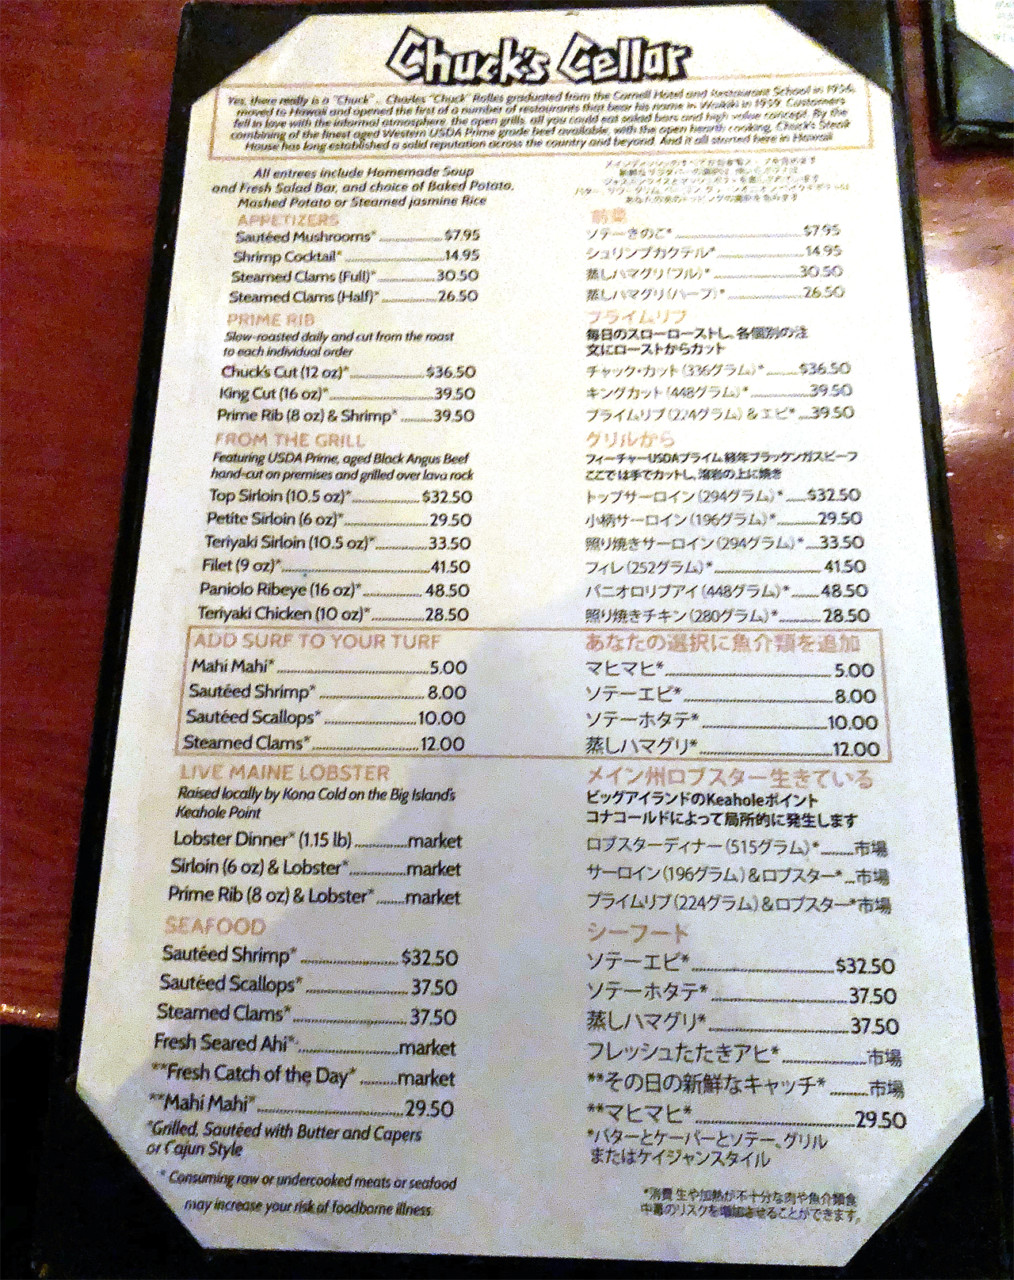 Chuck's Cellar
Yes, there really is a "Chuck" .. Charles "Chuck" Rolles graduated from the Cornell Hotel and Restaurant School in 1956,
moved to Hawaii and opened the first of a number of restaurants that bear his name in Waikiki in 1959. Customers
fell in love with the informal atmosphere, the open grills, all you could eat salad bars and high value concept. By the
combining of the finest aged Western USDA Prime grade beef available, with the open hearth cooking, Chuck's Steak
House has long established a solid reputation across the country and beyond. And it all started here in Hawaii
All entrees include Homemade Soup
and Fresh Salad Bar, and choice of Baked Potato,
Mashed Potato or Steamed Jasmine Rice
APPETIZERS
Sautéed Mushrooms* $7.95
Shrimp Cocktail* 14.95
Steamed Clams (Full)* 30.50
Steamed Clams (Half)* 26.50
PRIME RIB
Slow-roasted daily and cut from the roast
to each individual order
Chuck's Cut (12 oz)* $36.50
King Cut (16 oz)* 39.50
Prime Rib (8 oz) & Shrimp* 39.50
FROM THE GRILL
Featuring USDA Prime, aged Black Angus Beef
hand-cut on premises and grilled over lava rock
Top Sirloin (10.5 oz)* $32.50
Petite Sirloin (6 oz)* 29.50
Teriyaki Sirloin (10.5 oz)* 33.50
Filet (9 oz)* 41.50
Paniolo Ribeye (16 oz)* 48.50
Teriyaki Chicken (10 oz)* 28.50
ADD SURF TO YOUR TURF
Mahi Mahi* 5.00
Sautéed Shrimp* 8.00
Sautéed Scallops* 10.00
Steamed Clams* 12.00
LIVE MAINE LOBSTER
Raised locally by Kona Cold on the Big Island's
Keahole Point
Lobster Dinner* (1.15 lb) market
Sirloin (6 oz) & Lobster* market
Prime Rib (8 oz) & Lobster* market
SEAFOOD
Sautéed Shrimp* $32.50
Sautéed Scallops* 37.50
Steamed Clams* 37.50
Fresh Seared Ahi* market
**Fresh Catch of the Day* market
**Mahi Mahi* 29.50
*Grilled, Sautéed with Butter and Capers
or Cajun Style
* Consuming raw or undercooked meats or seafood
may increase your risk of foodborne illness.
前菜
ソテーきのこ* $7.95
シュリンプカクテル* 14.95
蒸しハマグリ(フル)* 30.50
蒸しハマグリ(ハーフ)* 26.50
プライムリブ
毎日のスローローストし、各個別の注
文にローストからカット
チャック・カット(336グラム)* $36.50
キングカット(448グラム)* 39.50
プライムリブ(224グラム) & エビ* 39.50
グリルから
フィーチャーUSDAプライム、経年ブラックンガスビーフ
ここでは手でカットし、溶岩の上に焼き
トップサーロイン(294グラム)* $32.50
小柄サーロイン(196グラム)* 29.50
照り焼きサーロイン(294グラム)* 33.50
フィレ(252グラム)* 41.50
パニオロリブアイ(448グラム)* 48.50
照り焼きチキン(280グラム)* 28.50
あなたの選択に魚介類を追加
マヒマヒ* 5.00
ソテーエビ* 8.00
ソテーホタテ* 10.00
蒸しハマグリ* 12.00
メイン州ロブスター生きている
ビッグアイランドのKeaholeポイント
コナコールドによって局所的に発生します
ロブスターディナー(515グラム)* 市場
サーロイン(196グラム)&ロブスター* 市場
プライムリブ(224グラム)&ロブスター*市場
シーフード
ソテーエビ* $32.50
ソテーホタテ* 37.50
蒸しハマグリ* 37.50
フレッシュたたきアヒ* 市場
**その日の新鮮なキャッチ* 市場
**マヒマヒ* 29.50
*バターとケーパーとソテー、グリル
またはケイジャンスタイル
*消費 生や加熱が不十分な肉や魚介類食
中毒のリスクを増加させることができます。